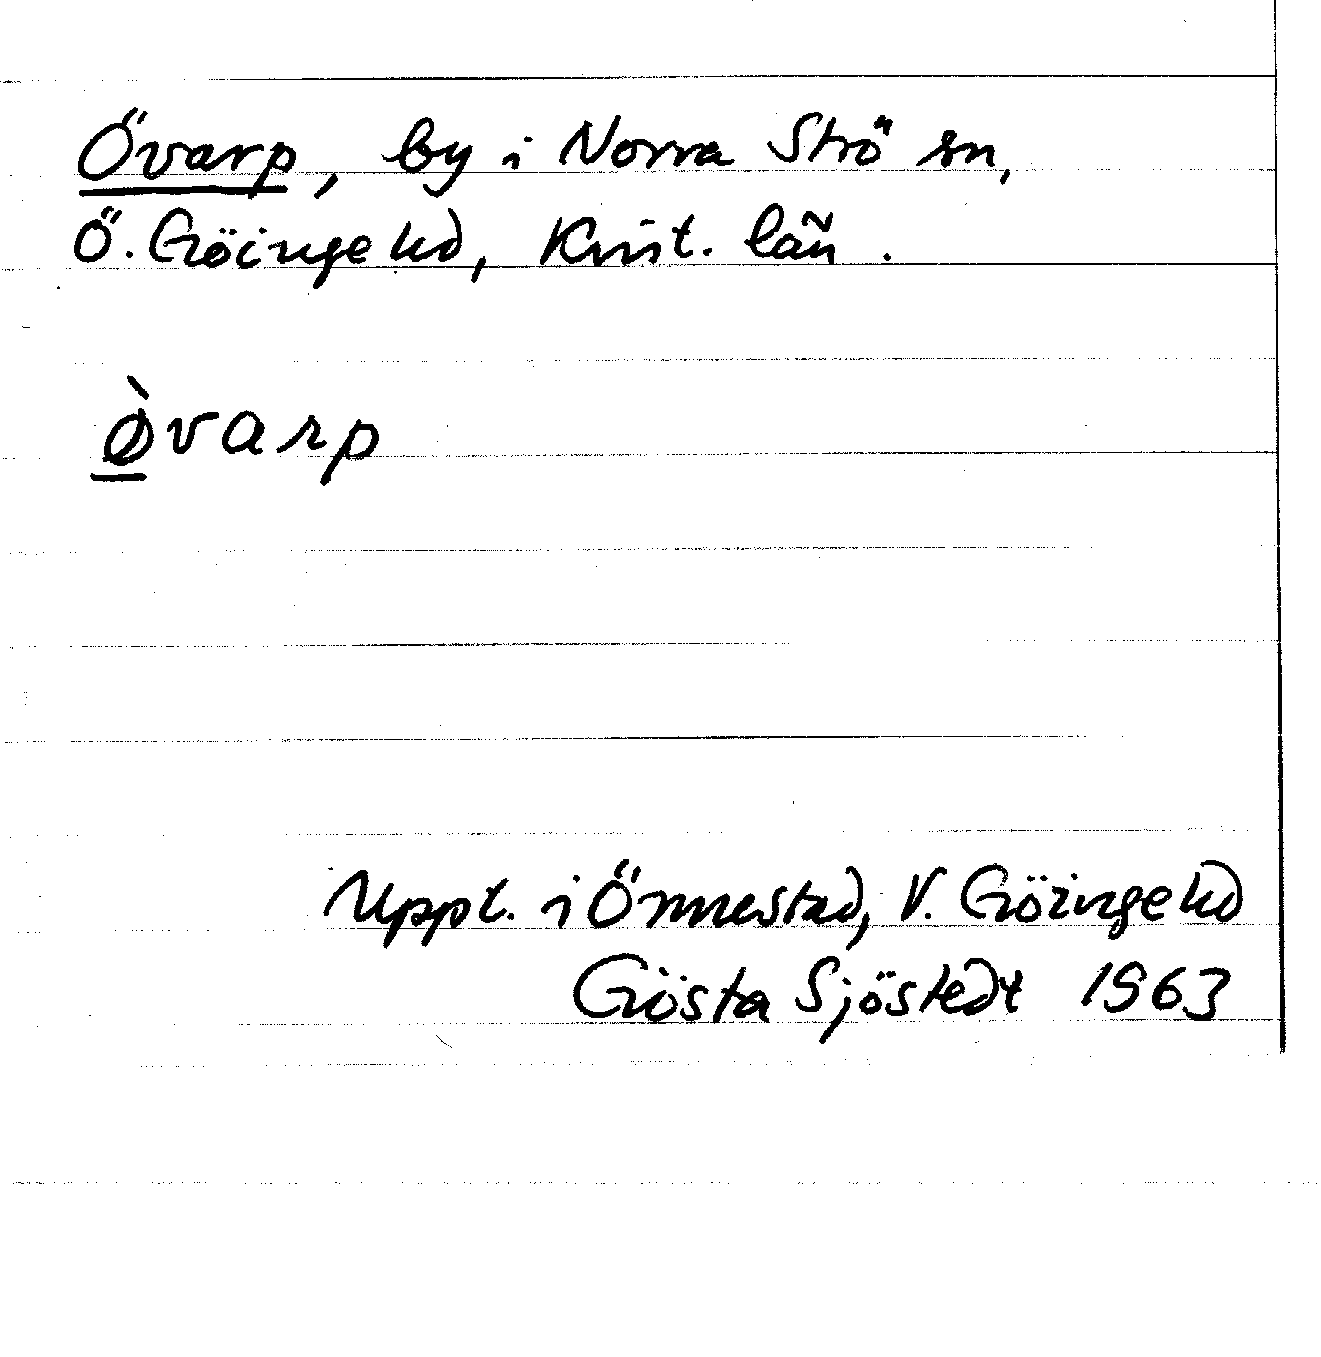 Övarp, by i Norra Strö sn,
Ö. Göinge hd, Krist. län.
ø̀varp
Uppt. i Önnestad, V. Göinge hd
Gösta Sjöstedt 1963